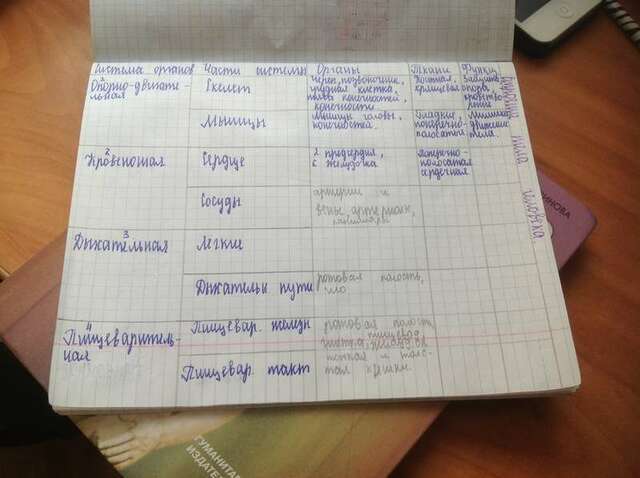 Система органов Части системы Органы Ткани Функции
Опорно-двигате-
льная
Скелет
череп, позвоночник,
грудная клетка,
пояса конечностей,
конечности
Костная,
хрящевая
Защита,
опора,
кроветво-
рение
Мышцы
Мышцы головы,
конечностей.
Гладкая,
поперечно-
полосатые
движение
тела.
2
Кровеносная
Сердце
2 предсердия,
2 желудочка
Поперечно-
полосатая
сердечная
Сосуды
артерии и
вены, артериолы,
капилляры
3
Дыхательная
Легкие
Дыхательн пути
ротовая полость,
4
Пищеваритель-
ная
Пищевар. железы
ротовая полость
глотка, пищевод,
желудок
Пищевар. такт
тонкая и толс-
тая кишки.
тела человека
ИНОВА
ГУМАНИТАР
ИЗДАТЕЛ